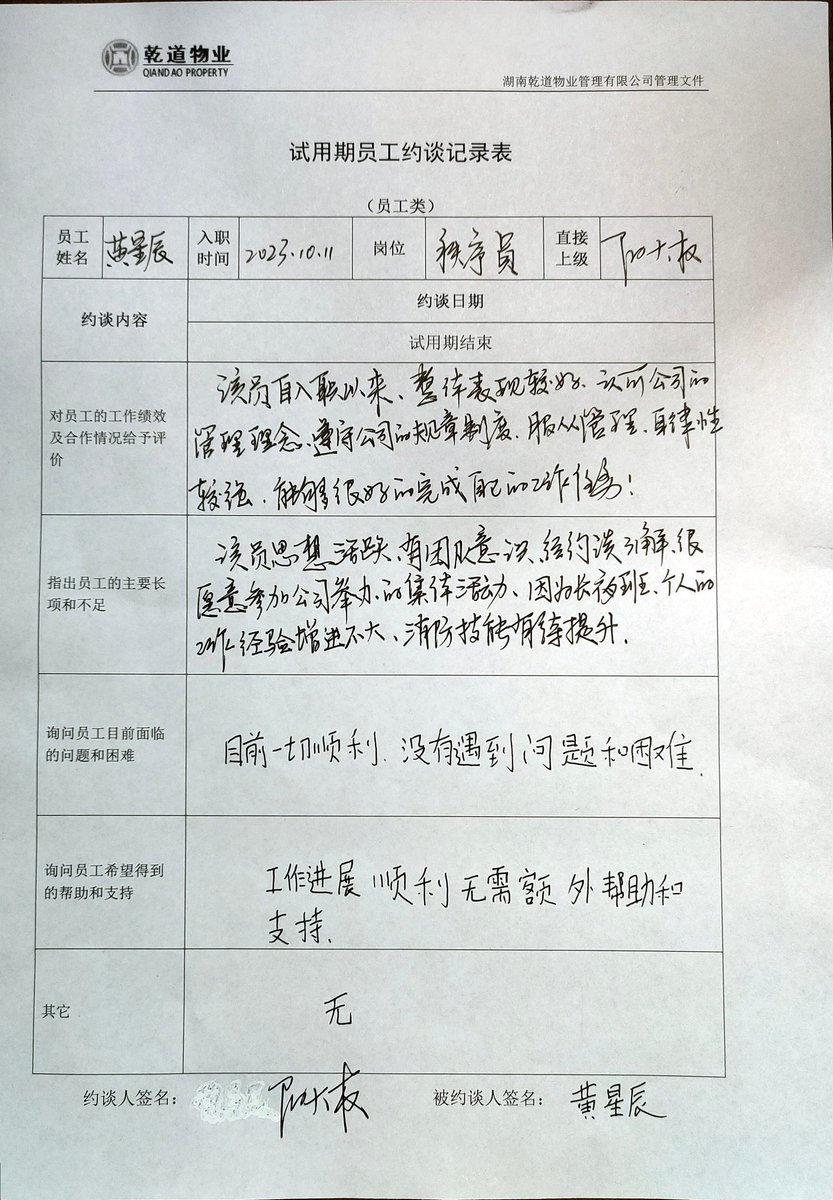 乾道物业
QIANDAO PROPERTY
湖南乾道物业管理有限公司管理文件
试用期员工约谈记录表
（员工类）
员工姓名 黄星辰 入职时间 2023.10.11 岗位 秩序员 直接上级 大权
约谈内容 约谈日期
试用期结束
对员工的工作绩效
及合作情况给予评
价
该员自入职以来、整体表现较好、认可公司的
管理理念、遵守公司的规章制度、服从管理、自律性
较强、能够很好的完成自己的工作任务！
指出员工的主要长
项和不足
该员思想活跃、有团队意识、经约谈了解、很
愿意参加公司举办的集体活动、因为长夜班、个人的
工作经验增进不大、消防技能有待提升.
询问员工目前面临
的问题和困难
目前一切顺利. 没有遇到问题和困难.
询问员工希望得到
的帮助和支持
工作进展顺利无需额外帮助和
支持.
其它
无
约谈人签名： 大权 被约谈人签名： 黄星辰